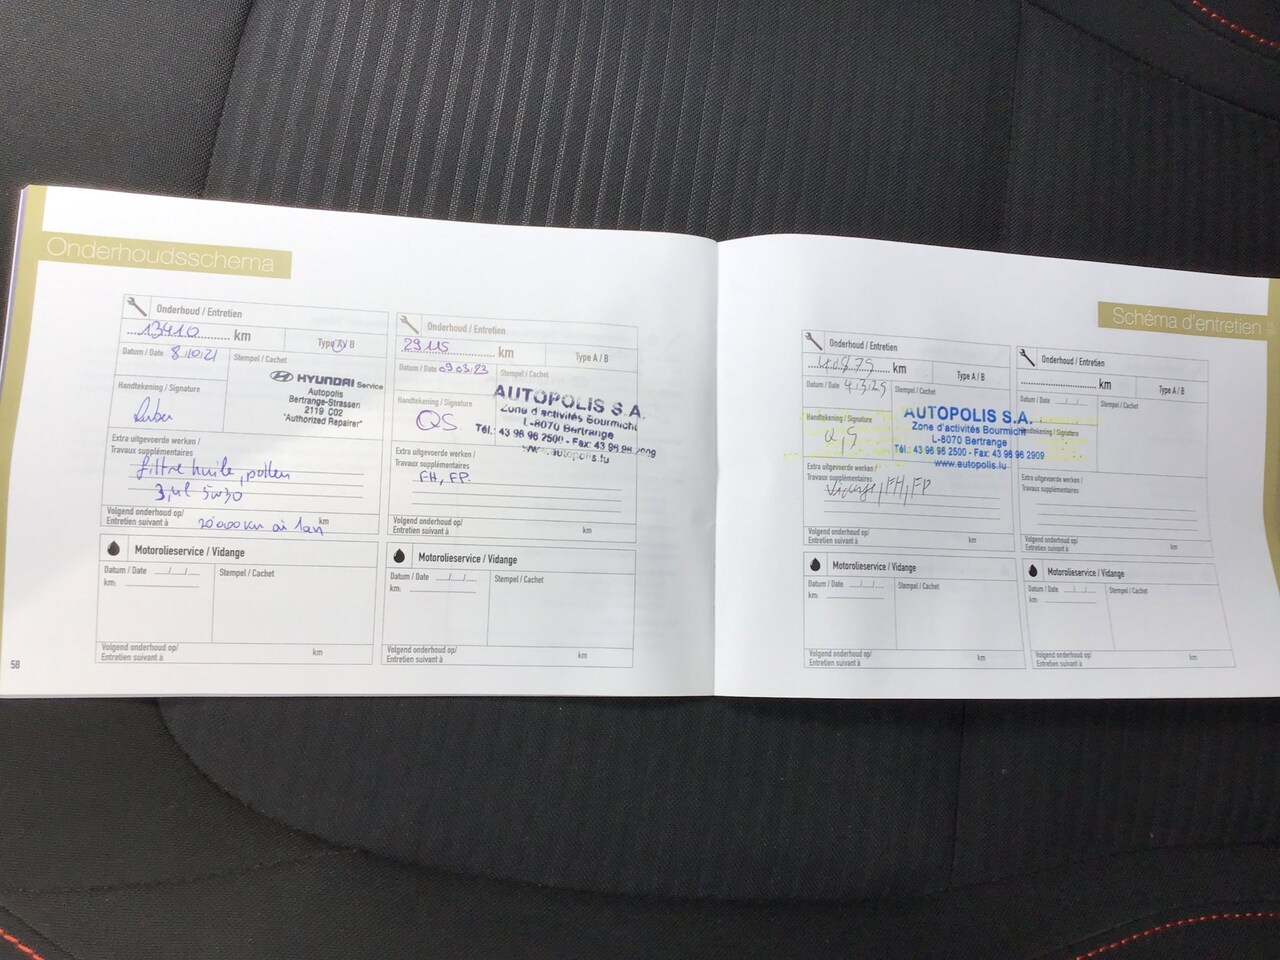 Onderhoudsschema
Onderhoud / Entretien
13410 km
Type A / B
Datum / Date 8.10.21
Stempel / Cachet
HYUNDAI Service
Autopolis
Bertrange-Strassen
2119 C02
"Authorized Repairer"
Handtekening / Signature
Extra uitgevoerde werken /
Travaux supplémentaires
filtre huile, pollen
5w30
Volgend onderhoud op/
Entretien suivant à 20'000 km ou 1 an km
Motorolieservice / Vidange
Datum / Date __/__/__
km:
Stempel / Cachet
Volgend onderhoud op/
Entretien suivant à km
58
Onderhoud / Entretien
29115 km
Type A / B
Datum / Date 09.03.23
Stempel / Cachet
AUTOPOLIS S.A.
Zone d'activités Bourmicht
L-8070 Bertrange
Tél.: 43 96 96 2500 - Fax: 43 96 96 2909
www.autopolis.lu
Handtekening / Signature
QS
Extra uitgevoerde werken /
Travaux supplémentaires
FH, FP.
Volgend onderhoud op/
Entretien suivant à km
Motorolieservice / Vidange
Datum / Date __/__/__
km:
Stempel / Cachet
Volgend onderhoud op/
Entretien suivant à km
Schéma d'entretien
Onderhoud / Entretien
km
Type A / B
Datum / Date 4.3.25
Stempel / Cachet
AUTOPOLIS S.A.
Zone d'activités Bourmicht
L-8070 Bertrange
Tél.: 43 96 96 2500 - Fax: 43 96 96 2909
www.autopolis.lu
Handtekening / Signature
QS
Extra uitgevoerde werken /
Travaux supplémentaires
Vidange, FH, FP
Volgend onderhoud op/
Entretien suivant à km
Motorolieservice / Vidange
Datum / Date __/__/__
km:
Stempel / Cachet
Volgend onderhoud op/
Entretien suivant à km
Onderhoud / Entretien
km
Type A / B
Datum / Date __/__/__
Stempel / Cachet
Handtekening / Signature
Extra uitgevoerde werken /
Travaux supplémentaires
Volgend onderhoud op/
Entretien suivant à km
Motorolieservice / Vidange
Datum / Date __/__/__
km:
Stempel / Cachet
Volgend onderhoud op/
Entretien suivant à km